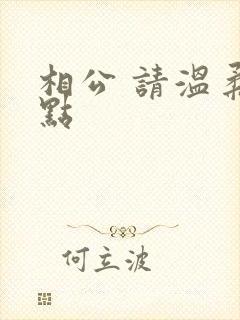 相公 請溫柔
點
何立波